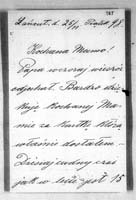 Łańcut. d. 25/
Kochana Mamo!
Papa wczoraj wieczór
odjechał. Bardzo dzię-
kuję Kochanej Ma-
mie za kartkę, którą
właśnie dostałem.
Dzisiaj cudny czas
jak w lecie jest 15